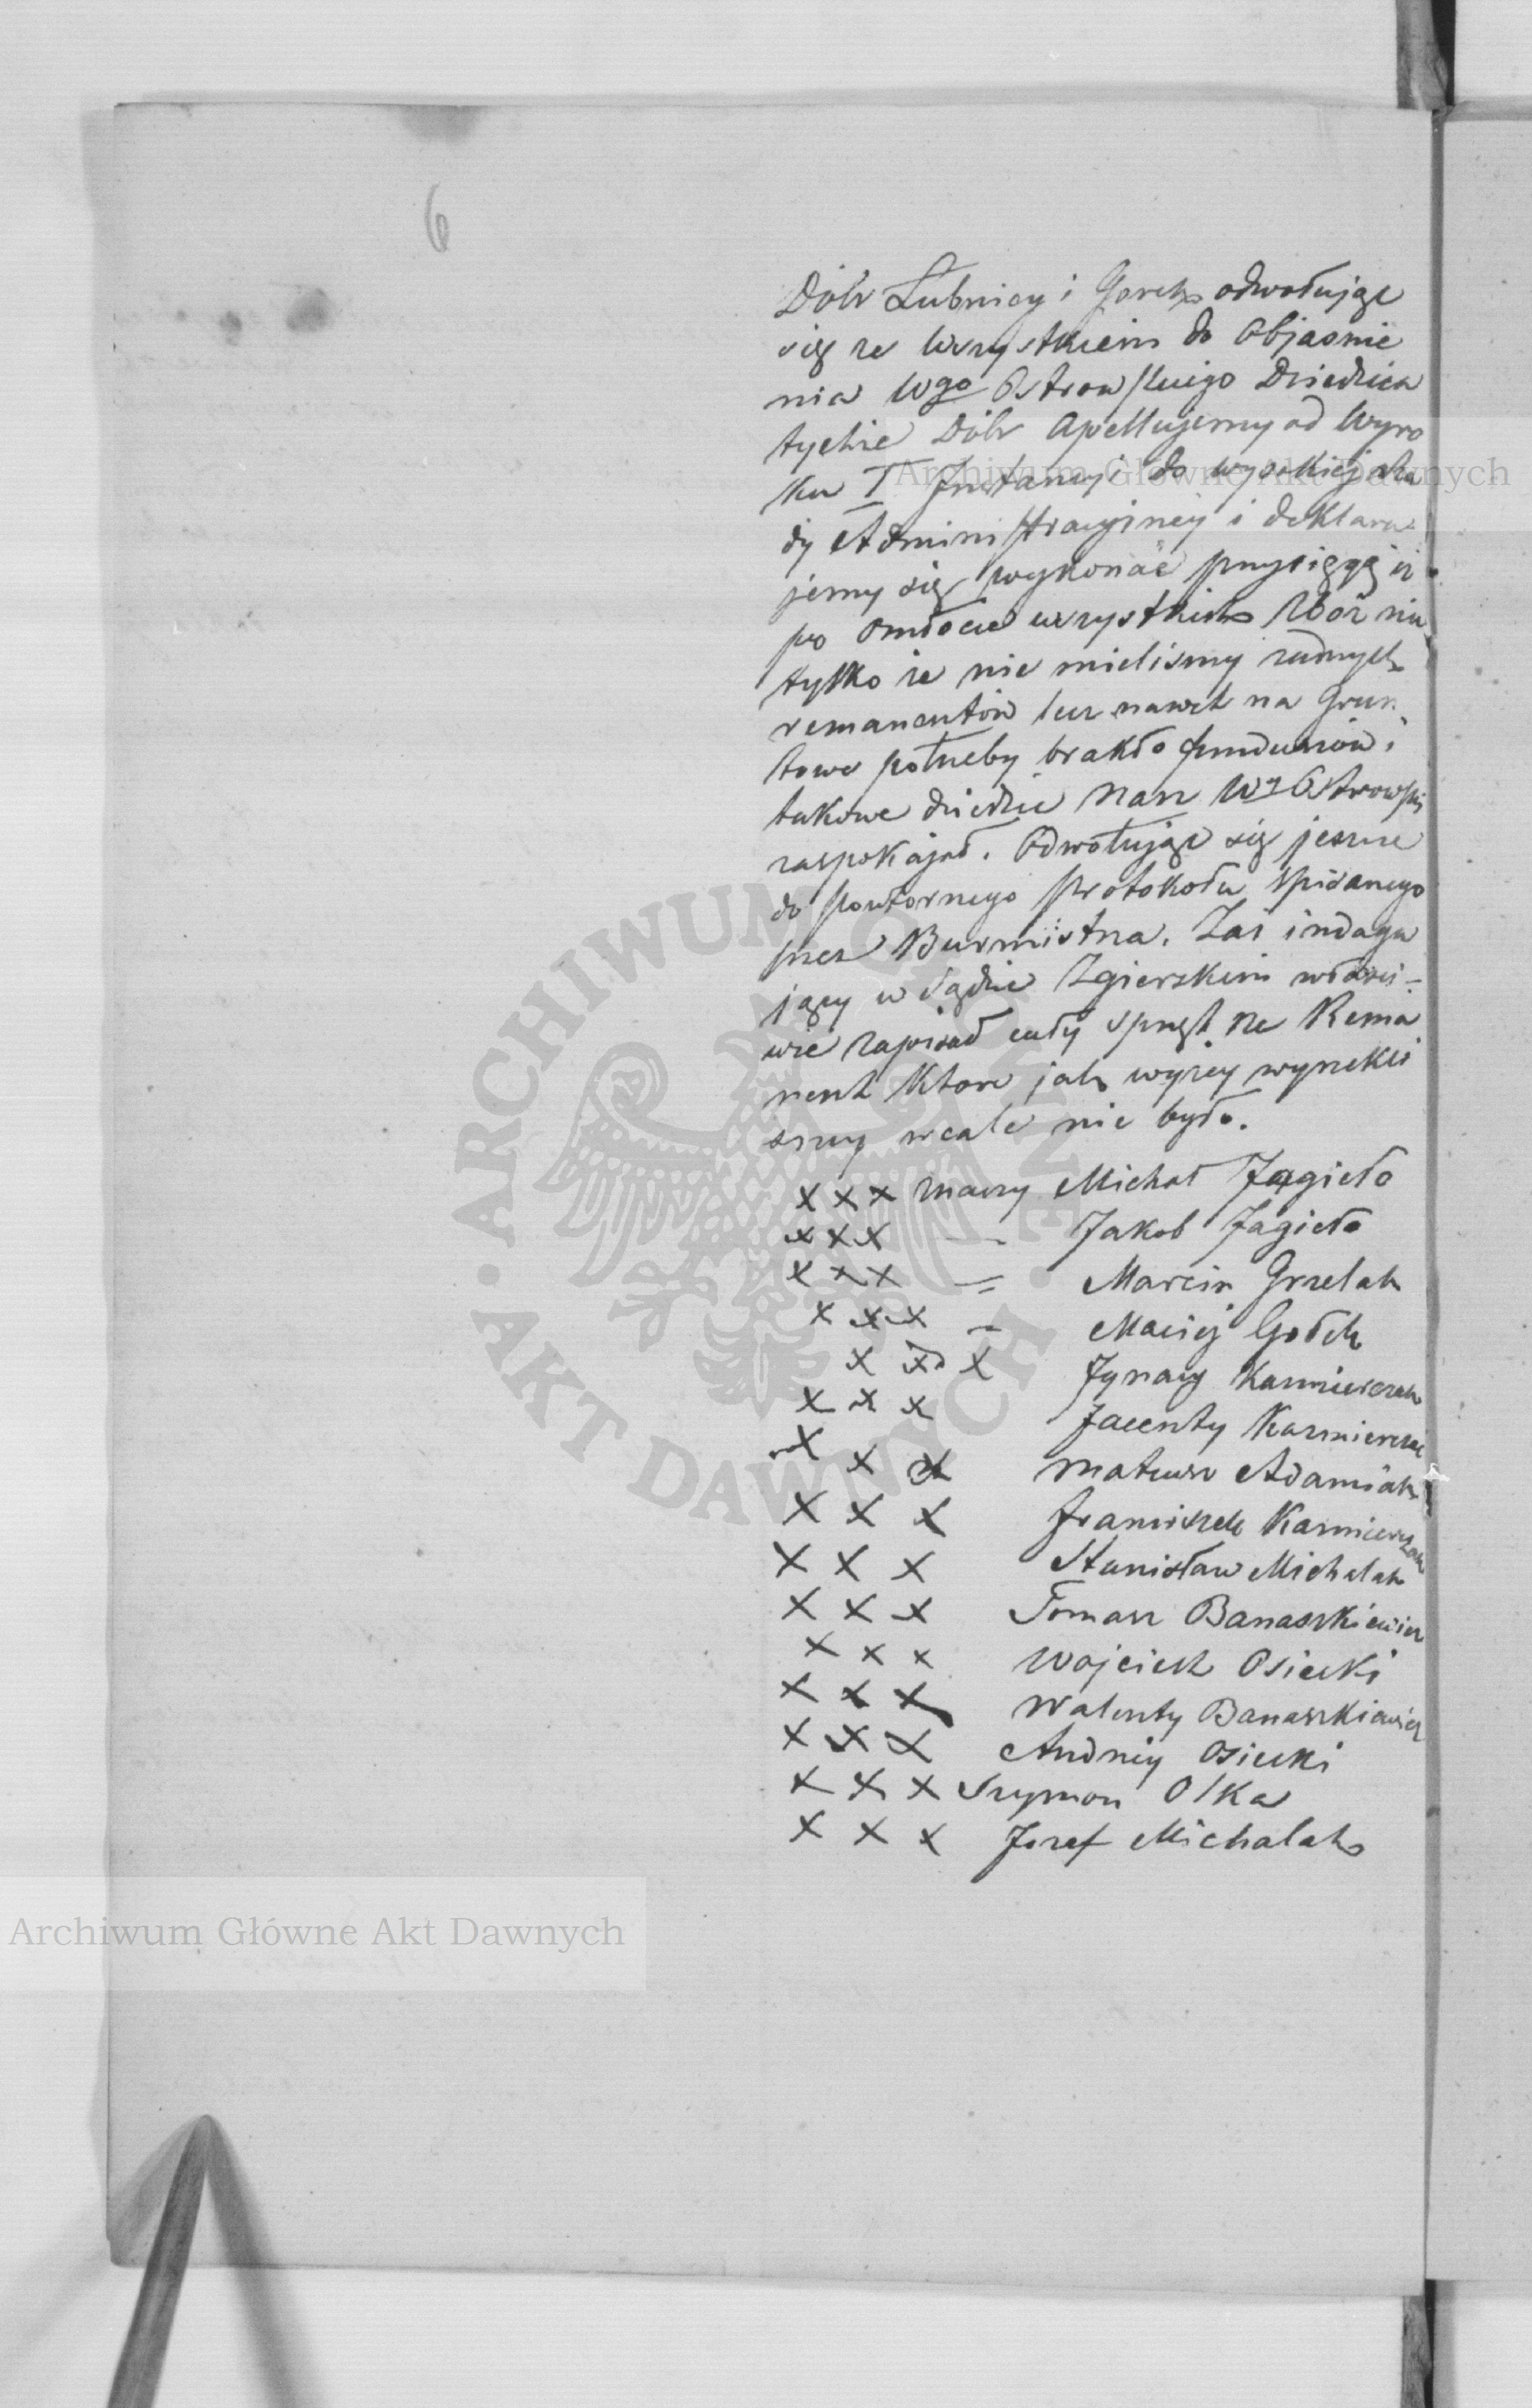 6
Dóbr Łubnicy i Gorek odwołując
się ze wszystkiem do Objaśnie
nia Wgo Ostrowskiego Dziedzica
tychże Dóbr Apellujemy od Wyro
ku I Instancyi do wysokiej Ra
dy Administracyjney i deklaru
jemy się wykonać przysięgę iż
po Omłocie wszystkich Zbóż nie
tylko że nie mieliśmy żadnych
remanentów lecz nawet na Grun
towe potrzeby brakło funduszów i
takowe dziedzic Nasz Wy Ostrowski
zaspokajał. Odwołując się jeszcze
do powtornego protokołu spisanego
przez Burmistrza. Zaś indagu
jący w Sądzie Zgierskim właści-
wie zapisał cały sprzęt za Rema
nent które jak wyżey wyrzekli
smy wcale nie było.
x x x znaczy Michał Jagieło
x x x — Jakob Jagieło
x x x = Marcin Grzelak
x x x — Maciej Gołek
x x x Ignacy Kazmierczak
x x x Jacenty Kazmierczak
x x x Mateusz Adamiak
x x x Franciszek Kazmierczak
x x x Stanisław Michalak
x x x Tomasz Banaszkiewicz
x x x Wojciech Osiecki
x x x Walenty Banaszkiewicz
x x x Andrzy Osiecki
x x x Szymon Olka
x x x Jozef Michalak
Archiwum Główne Akt Dawnych
Archiwum Główne Akt Dawnych
ARCHIWUM GŁÓWNE AKT DAWNYCH